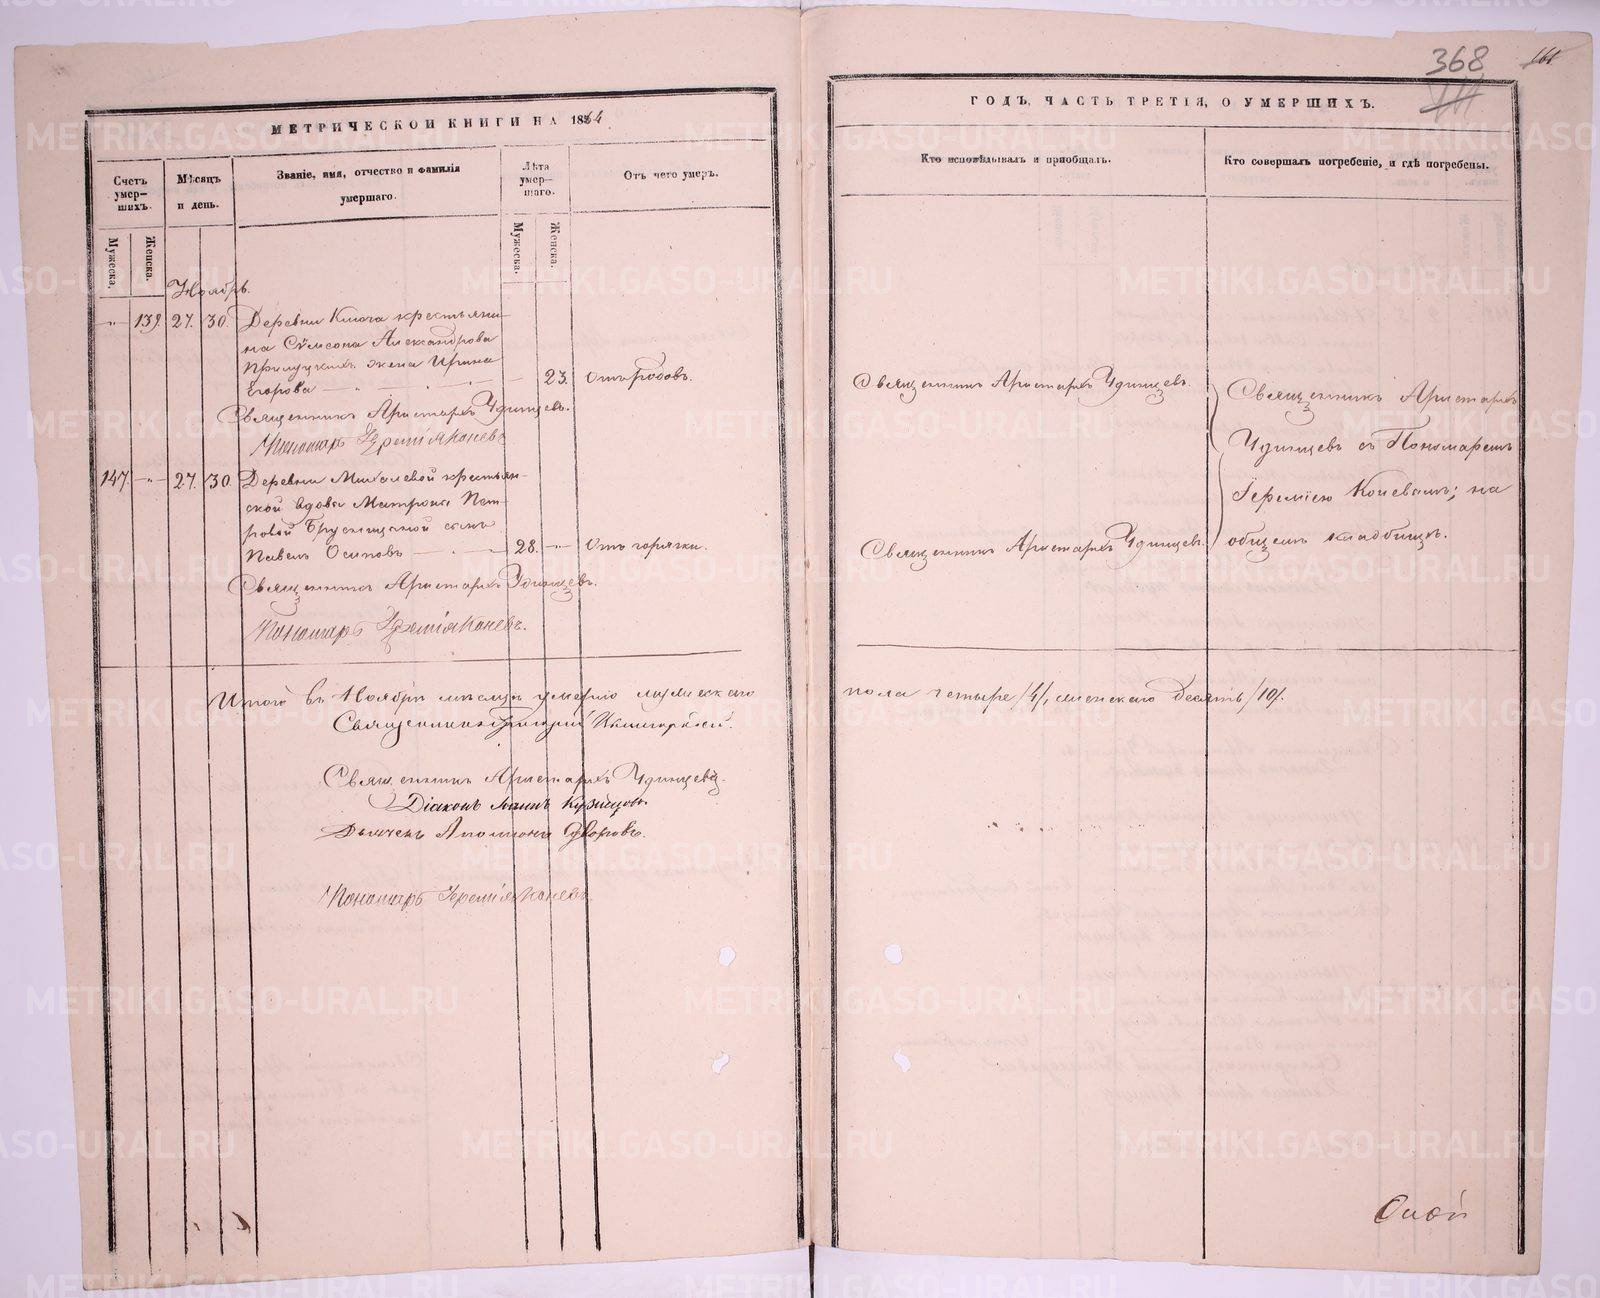 368
161
МЕТРИЧЕСКОЙ КНИГИ НА 1864
ГОДЪ, ЧАСТЬ ТРЕТІЯ, О УМЕРШИХЪ.
Счетъ умер-шихъ.
Мѣсяцъ и день.
Званіе, имя, отчество и фамилія умершаго.
Лѣта умер-шаго.
Отъ чего умеръ.
Кто исповѣдывалъ и пріобщалъ.
Кто совершалъ погребеніе, и гдѣ погребены.
Мужеска.
Женска.
Мужеска.
Женска.
Ноябрь.
139. 27. 30. Деревни Ключа крестьяни-
на Сѵмеона Александрова
женa Ирина
Егорова 23. Отъ родовъ.
Священникъ Аристархъ Удинцевъ.
Пономарь Іеремія Коневъ
147. 27. 30. Деревни Михалевой крестьян-
ской вдовы Матроны Пет-
ровой сынъ
Павелъ Осиповъ 28. Отъ горячки.
Священникъ Аристархъ Удинцевъ.
Пономарь Іеремія Коневъ.
Священникъ Аристархъ Удинцевъ.
Священникъ Аристархъ Удинцевъ.
Священникъ Аристархъ
Удинцевъ съ Пономаремъ
Іереміею Коневымъ; на
общемъ кладбищѣ.
Итого въ Ноябрѣ мѣсяцѣ умерло мужескаго
пола четыре /4/, женскаго десять /10/.
Священникъ
Священникъ Аристархъ Удинцевъ.
Діаконъ Іоаннъ
Дьячекъ
Пономарь Іеремія Коневъ.
METRIKI.GASO-URAL.RU